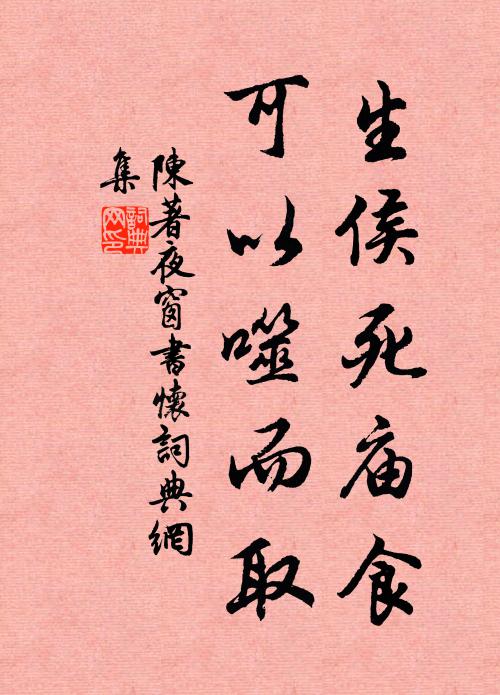 生侯死庙食
可以噬而取
陳著夜窗書懷詞典網
集
詞典
网印